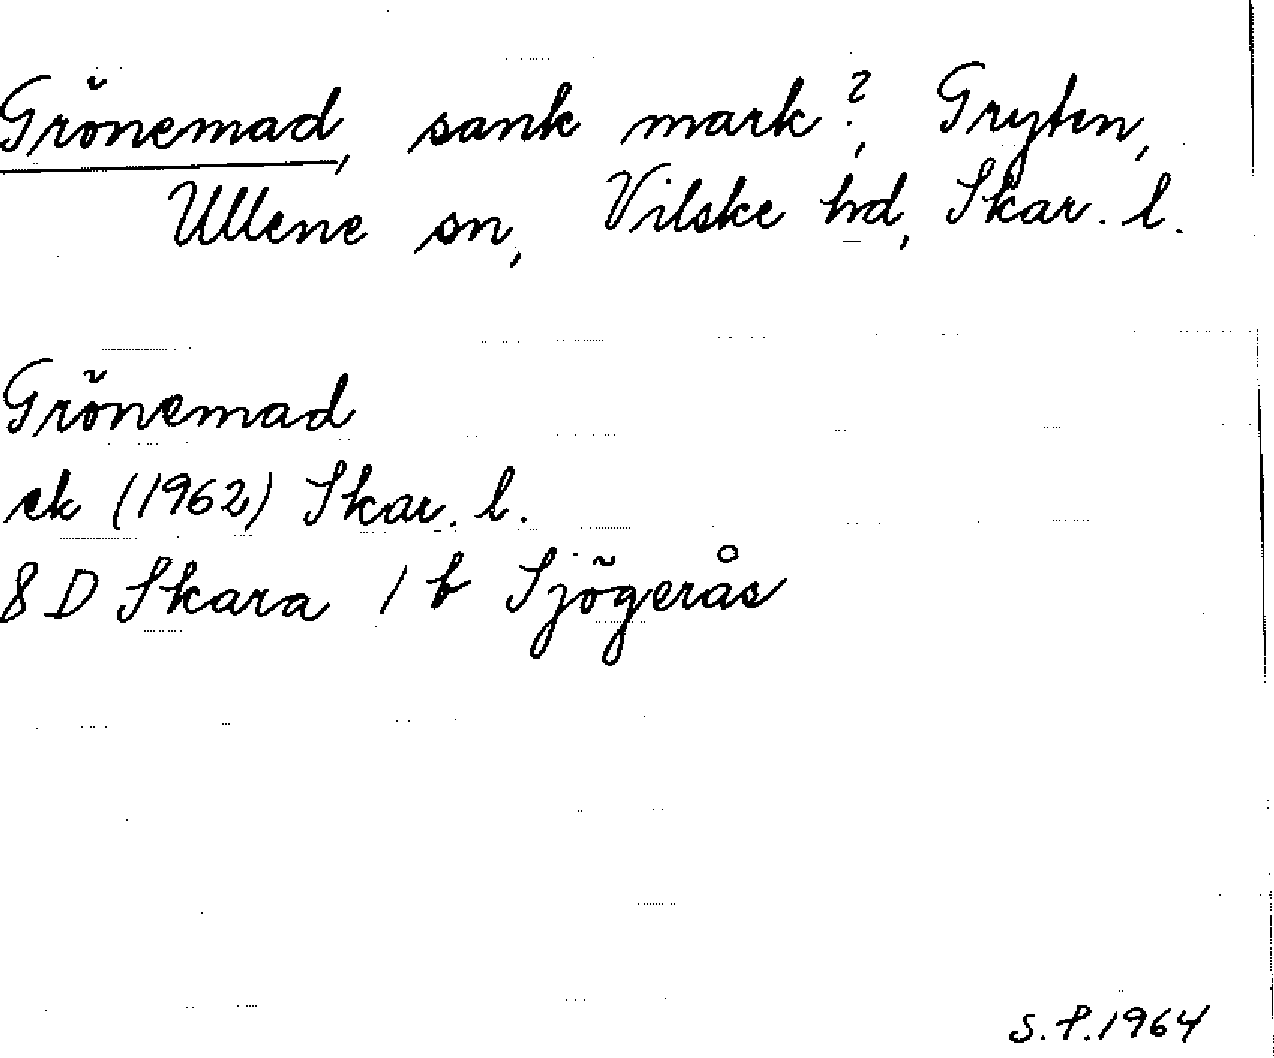 Grönemad, sank mark?, Gryten,
Ullene sn, Vilske hd, Skar. l.
Grönemad
ek (1962) Skar. l.
8 D Skara 1 b Sjögerås
S.P. 1964